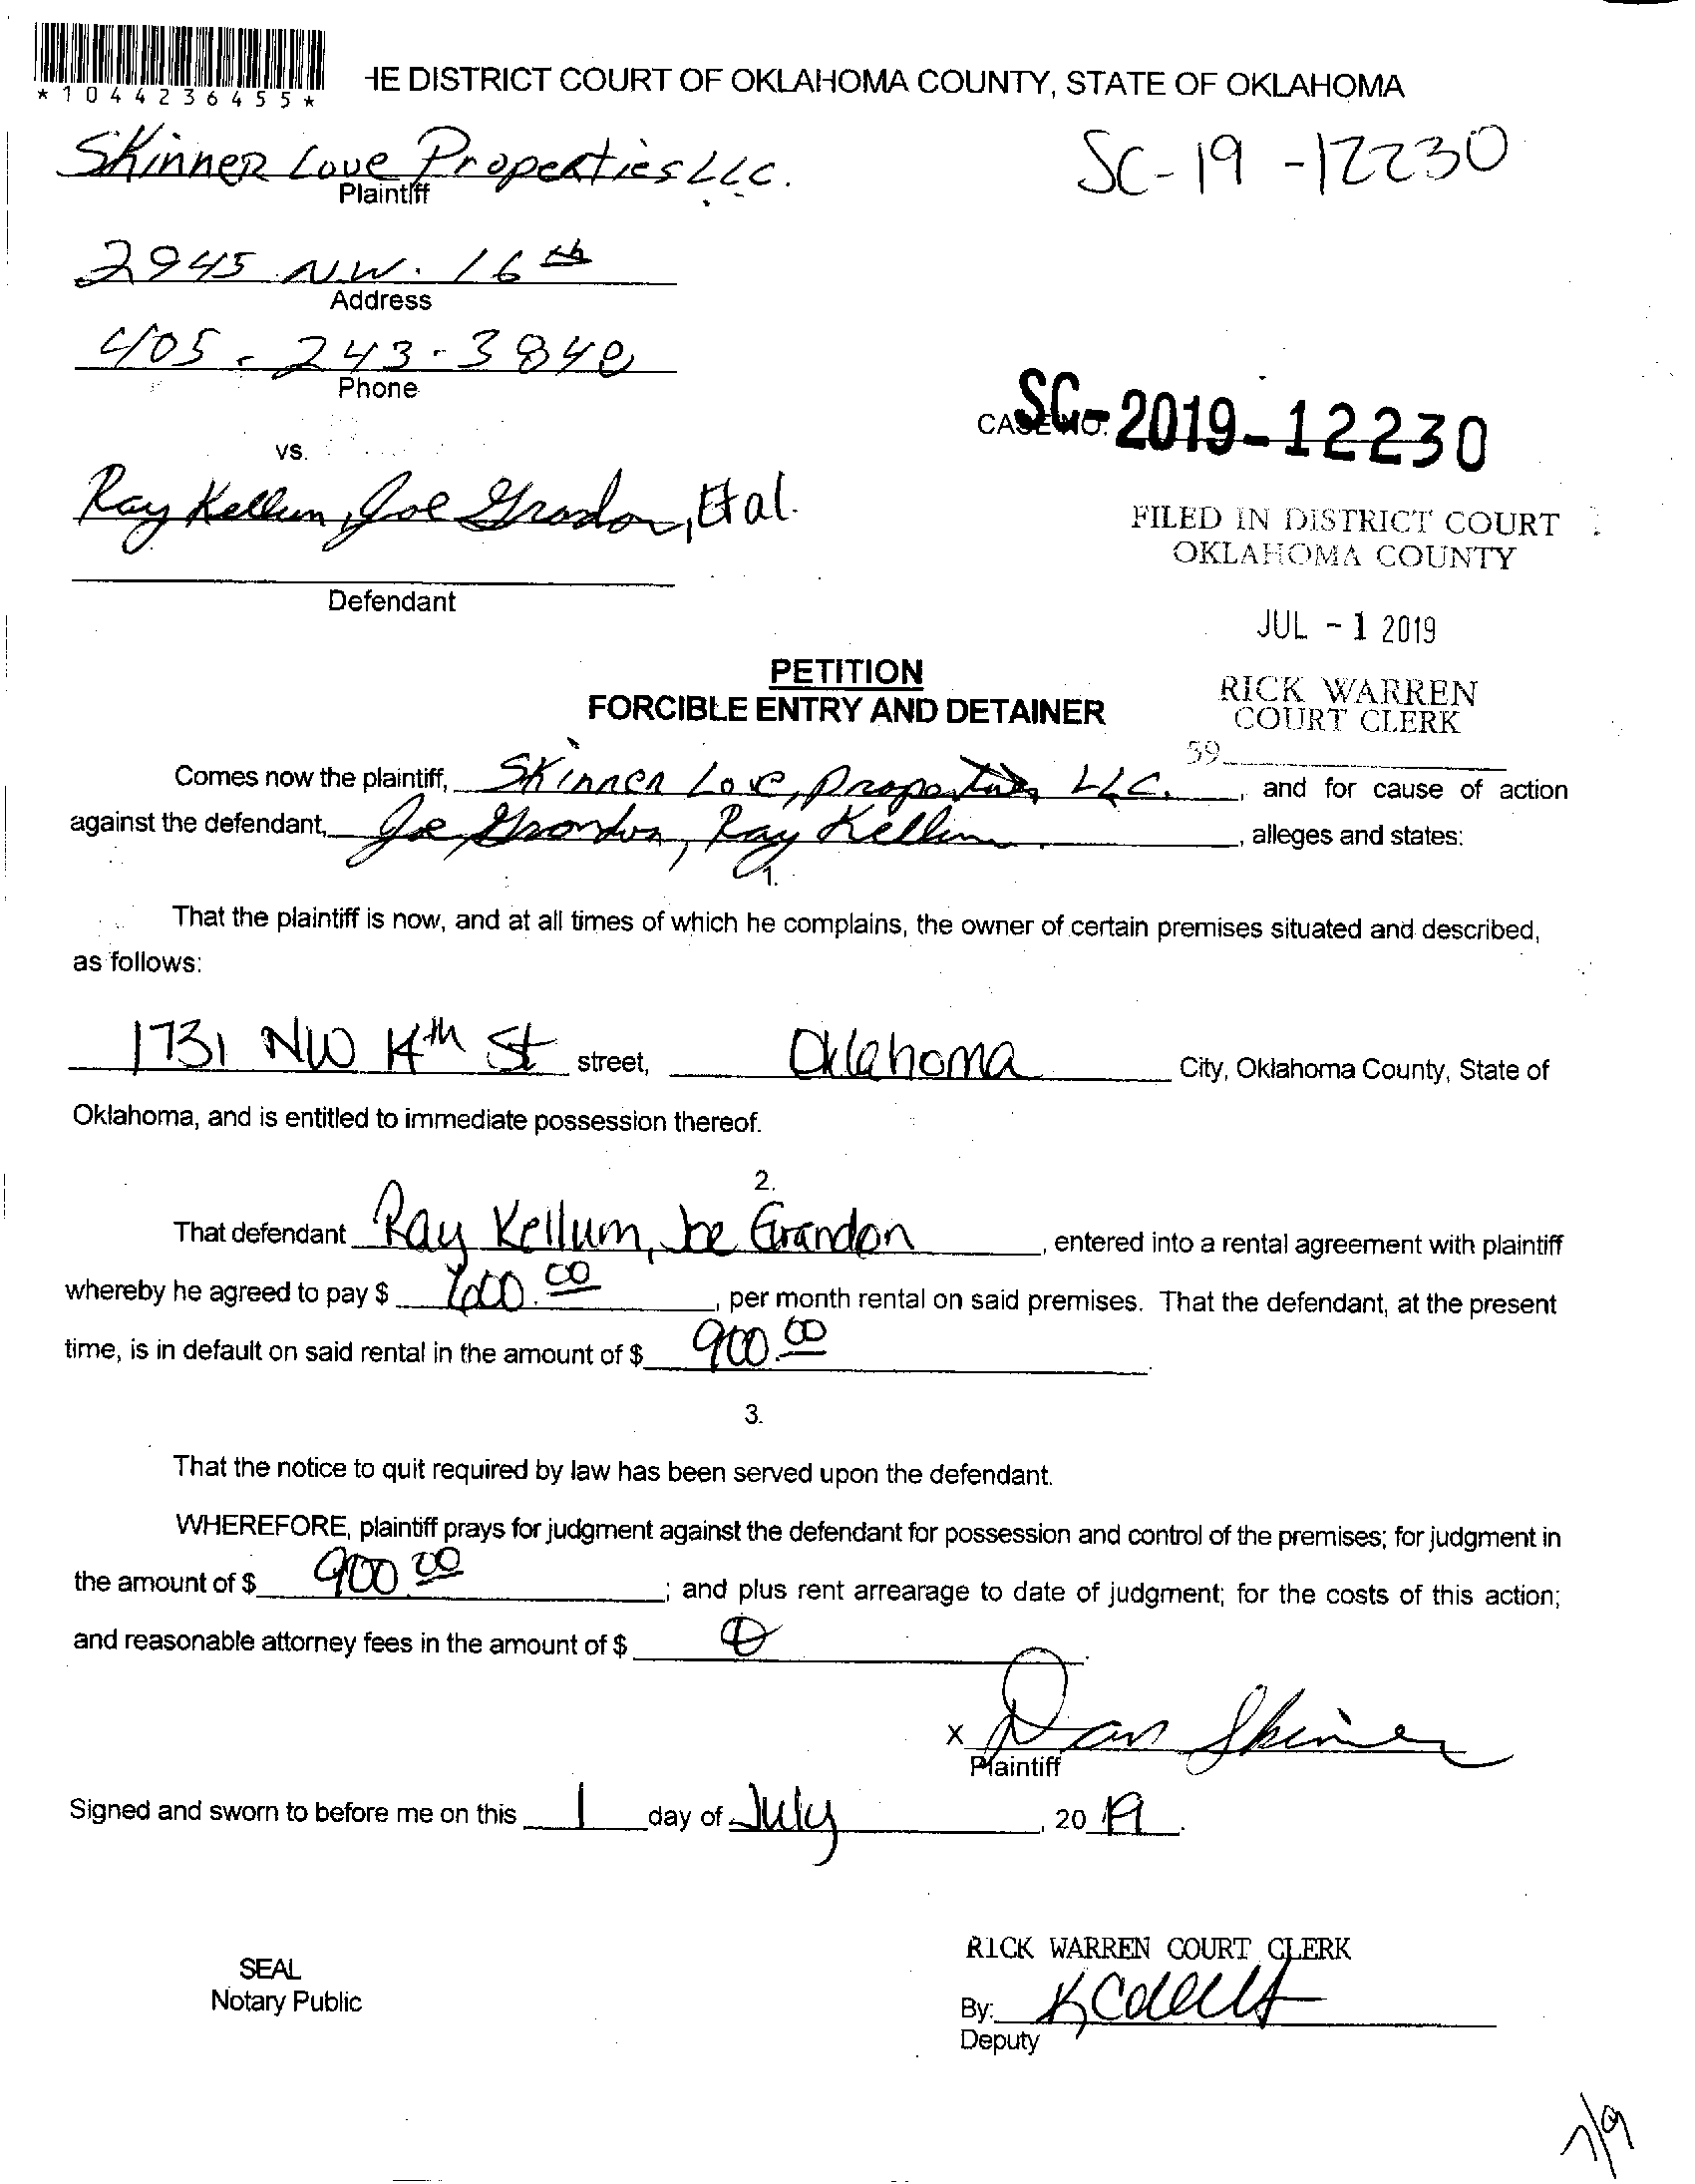 *1044236455*
HE DISTRICT COURT OF OKLAHOMA COUNTY, STATE OF OKLAHOMA
Skinner Love Properties LLC.
Plaintiff
SC-19-12230
2945 N.W. 16th
Address
405-243-3840
Phone
CASE NO. SC-2019-12230
vs.
Ray Kellum, Joe Grandon, Et al.
Defendant
FILED IN DISTRICT COURT
OKLAHOMA COUNTY
JUL - 1 2019
RICK WARREN
COURT CLERK
59
PETITION
FORCIBLE ENTRY AND DETAINER
Comes now the plaintiff, Skinner Love, Properties LLC., and for cause of action
against the defendant, Joe Grandon, Ray Kellum, alleges and states:
1.
That the plaintiff is now, and at all times of which he complains, the owner of certain premises situated and described,
as follows:
1731 NW 14th St street, Oklahoma City, Oklahoma County, State of
Oklahoma, and is entitled to immediate possession thereof.
2.
That defendant Ray Kellum, Joe Grandon, entered into a rental agreement with plaintiff
whereby he agreed to pay $ 600.00, per month rental on said premises. That the defendant, at the present
time, is in default on said rental in the amount of $ 900.00.
3.
That the notice to quit required by law has been served upon the defendant.
WHEREFORE, plaintiff prays for judgment against the defendant for possession and control of the premises; for judgment in
the amount of $ 900.00; and plus rent arrearage to date of judgment; for the costs of this action;
and reasonable attorney fees in the amount of $ 0.
x Dan Skinner
Plaintiff
Signed and sworn to before me on this 1 day of July, 2019.
SEAL
Notary Public
RICK WARREN COURT CLERK
By:
Deputy
7/9